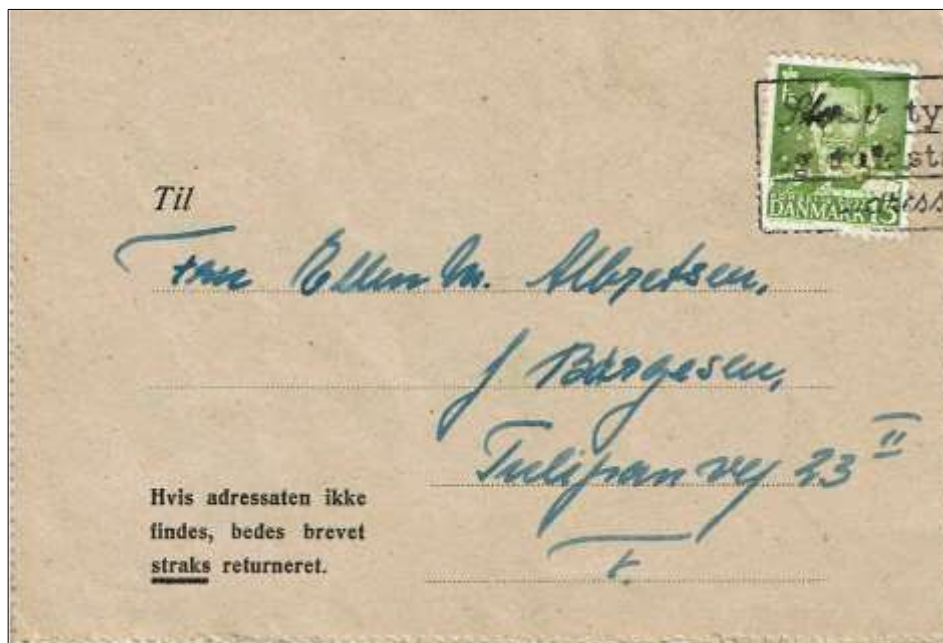 Skriv ty
g fuldst
adress
DANMARK 15
Til
Fru Ellen M. Albretsen,
J Börgesen,
Tulipanvej 23 II
F
Hvis adressaten ikke
findes, bedes brevet
straks returneret.